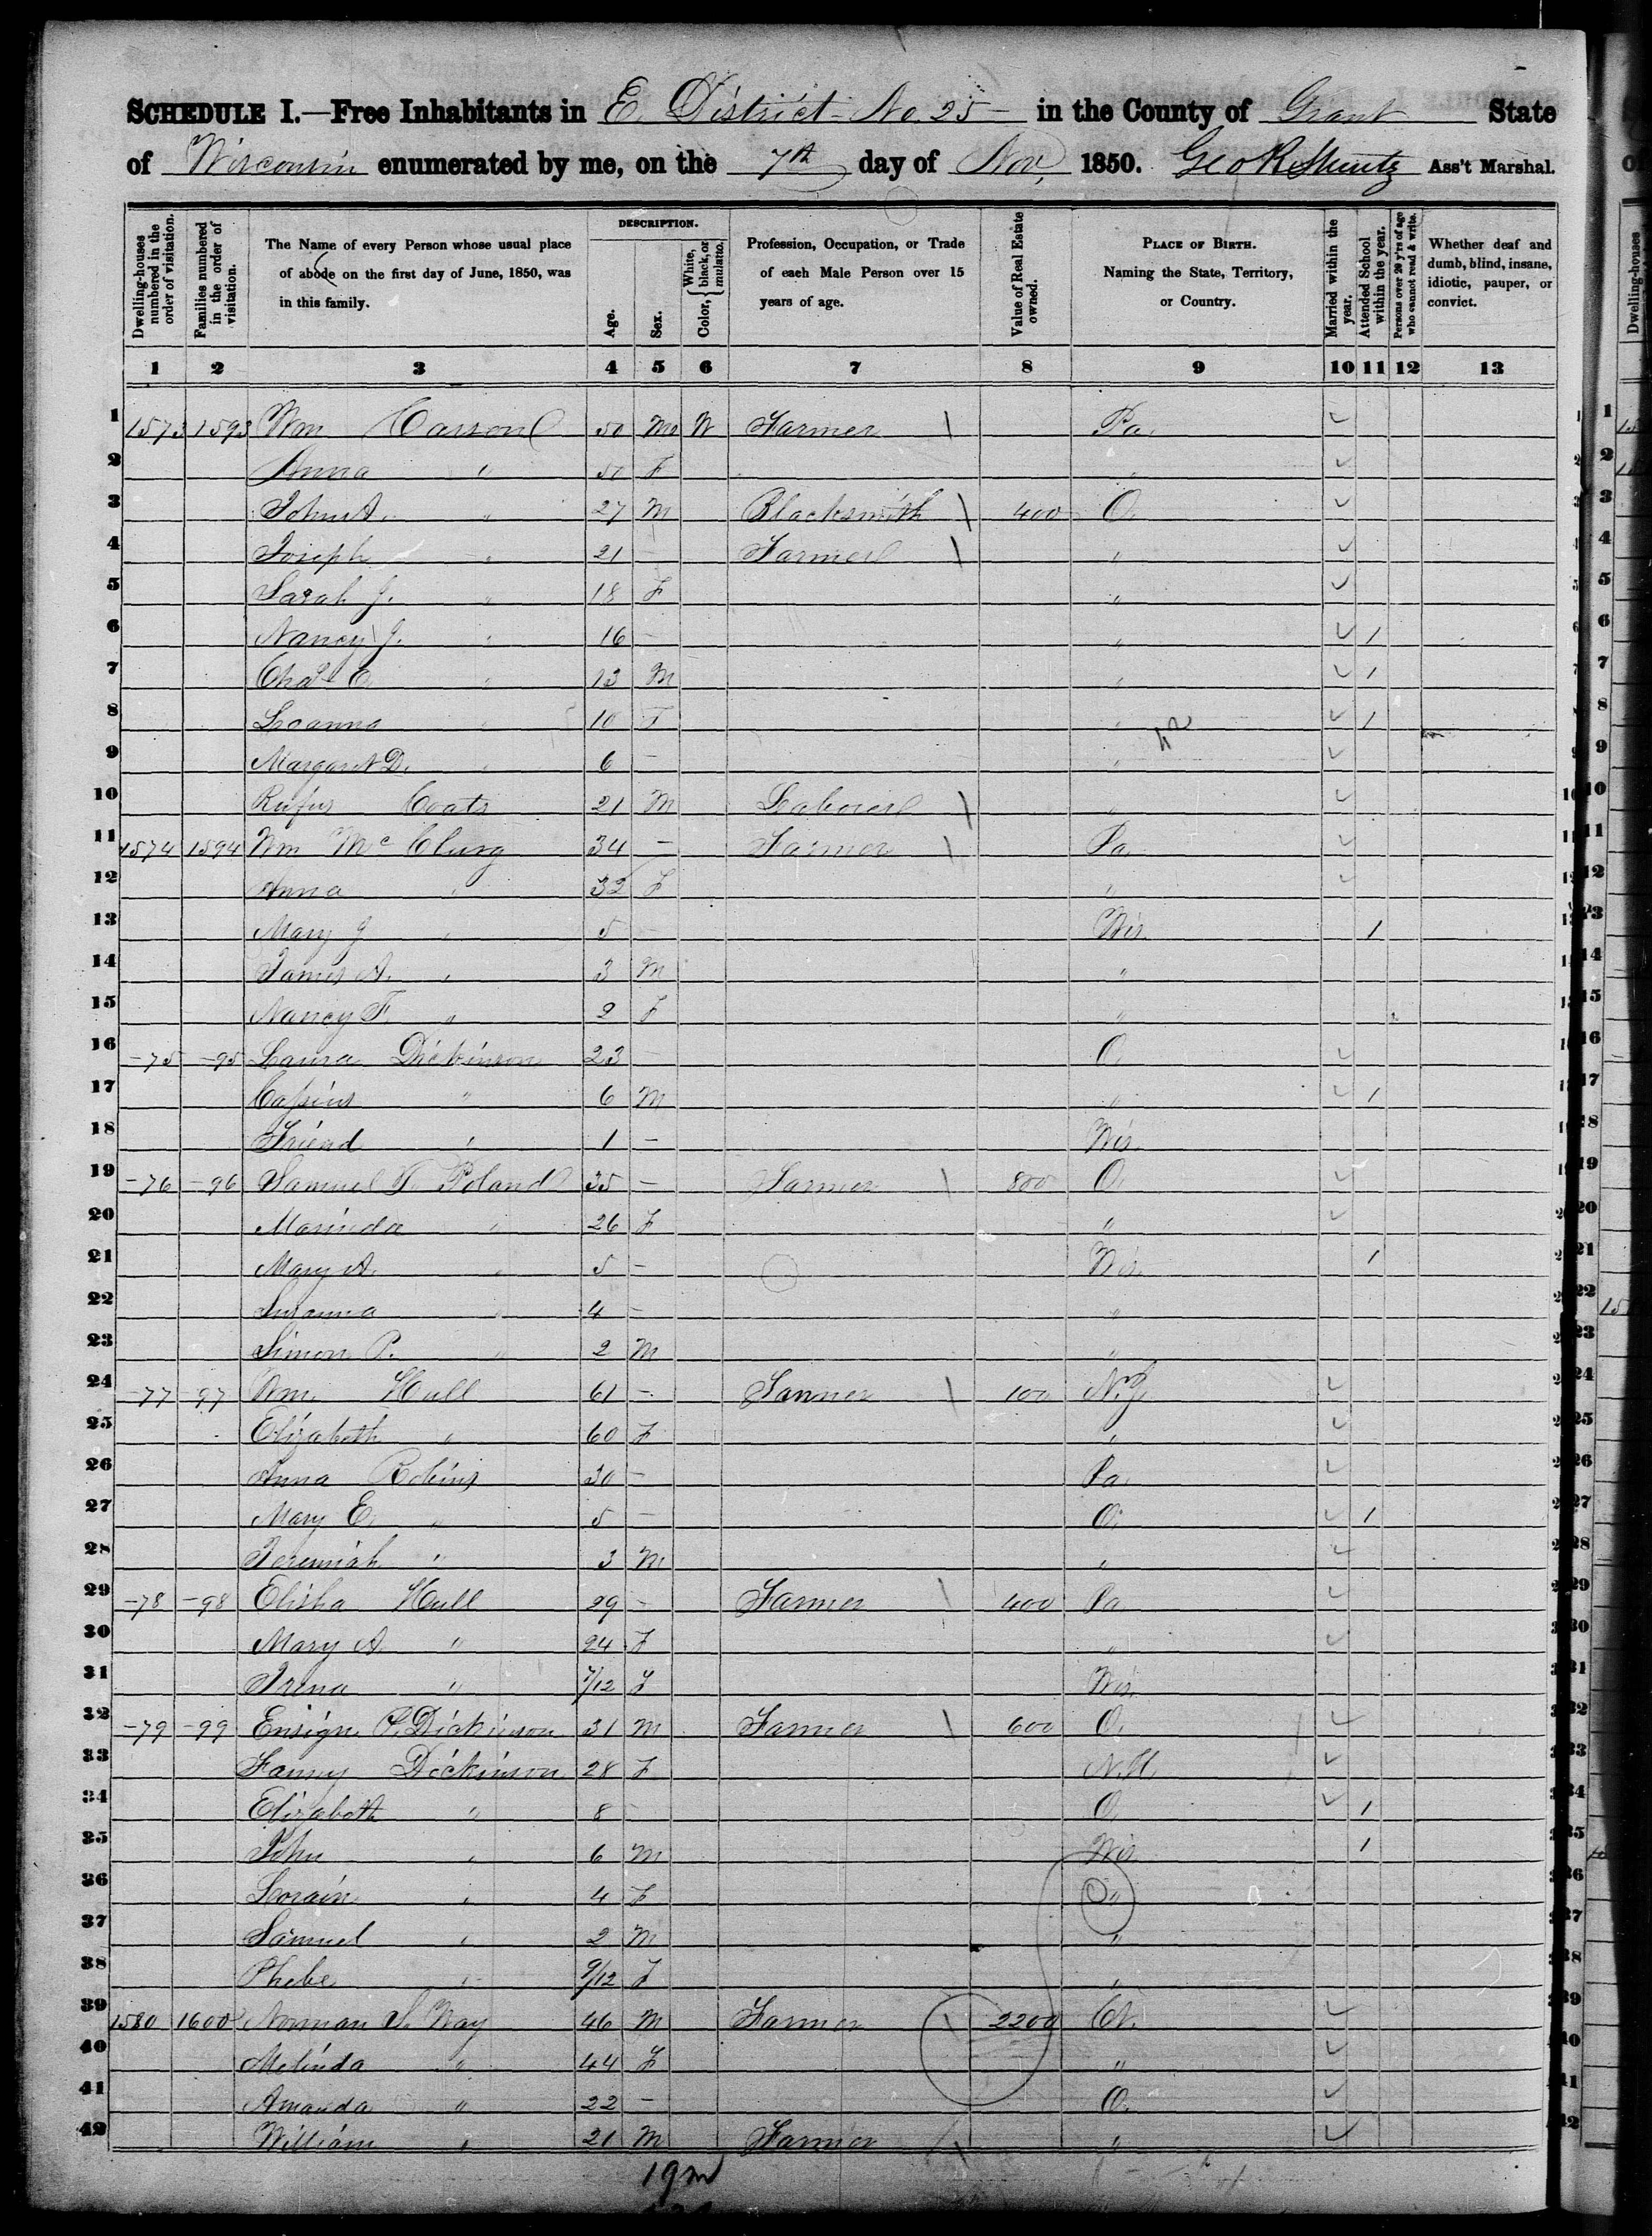 SCHEDULE I.—Free Inhabitants in E. District No. 25 in the County of Grant State
of Wisconsin enumerated by me, on the 7th day of Nov, 1850. Geo R Ass't Marshal.
Dwelling-houses numbered in the order of visitation. Families numbered in the order of visitation. The Name of every Person whose usual place of abode on the first day of June, 1850, was in this family. DESCRIPTION. Age. Sex. Color, White, black, or mulatto. Profession, Occupation, or Trade of each Male Person over 15 years of age. Value of Real Estate owned. PLACE OF BIRTH. Naming the State, Territory, or Country. Married within the year. Attended School within the year. Persons over 20 y'rs of age who cannot read & write. Whether deaf and dumb, blind, insane, idiotic, pauper, or convict.
1 2 3 4 5 6 7 8 9 10 11 12 13
1 1573 1593 Wm Carson 50 M W Farmer Pa.
2 Anna " 50 F "
3 John A. " 27 M Blacksmith 400 O.
4 Joseph " 21 – Farmer "
5 Sarah J. " 18 F "
6 Nancy J. " 16 – " 1
7 Chas E. " 13 M " 1
8 Leanna " 10 F " 1
9 Margaret D. " 6 – "
10 Rufus Coats 21 M Laborer "
11 1574 1594 Wm McClurg 34 – Farmer Pa.
12 Anna " 32 F "
13 Mary J " 5 – Wis. 1
14 James A. " 3 M "
15 Nancy F. " 2 F "
16 –75 –95 Laura Dickinson 23 – O.
17 Cassius " 6 M " 1
18 Friend " 1 – Wis.
19 –76 –96 Samuel T. Poland 35 – Farmer 800 O.
20 Marinda " 26 F "
21 Mary A. " 5 – Wis. 1
22 Susanna " 4 – "
23 Simon P. " 2 M "
24 –77 –97 Wm. Hull 61 – Farmer 100 N.J.
25 Elizabeth " 60 F "
26 Anna Robins 30 – Pa.
27 Mary E. " 5 – O. 1
28 Jeremiah " 3 M "
29 –78 –98 Elisha Hull 29 – Farmer 400 Pa
30 Mary A. " 24 F "
31 Irena " 7/12 F Wis.
32 –79 –99 Ensign P. Dickinson 31 M Farmer 600 O.
33 Fanny Dickinson 28 F N.H.
34 Elizabeth " 8 – O. 1
35 John " 6 M Wis 1
36 Lorain " 4 F "
37 Samuel " 2 M "
38 Phebe " 9/12 F "
39 1580 1600 Norman S. Way 46 M Farmer 2200 Ct.
40 Melinda " 44 F "
41 Amanda " 22 – O.
42 William " 21 M Farmer "
19 m